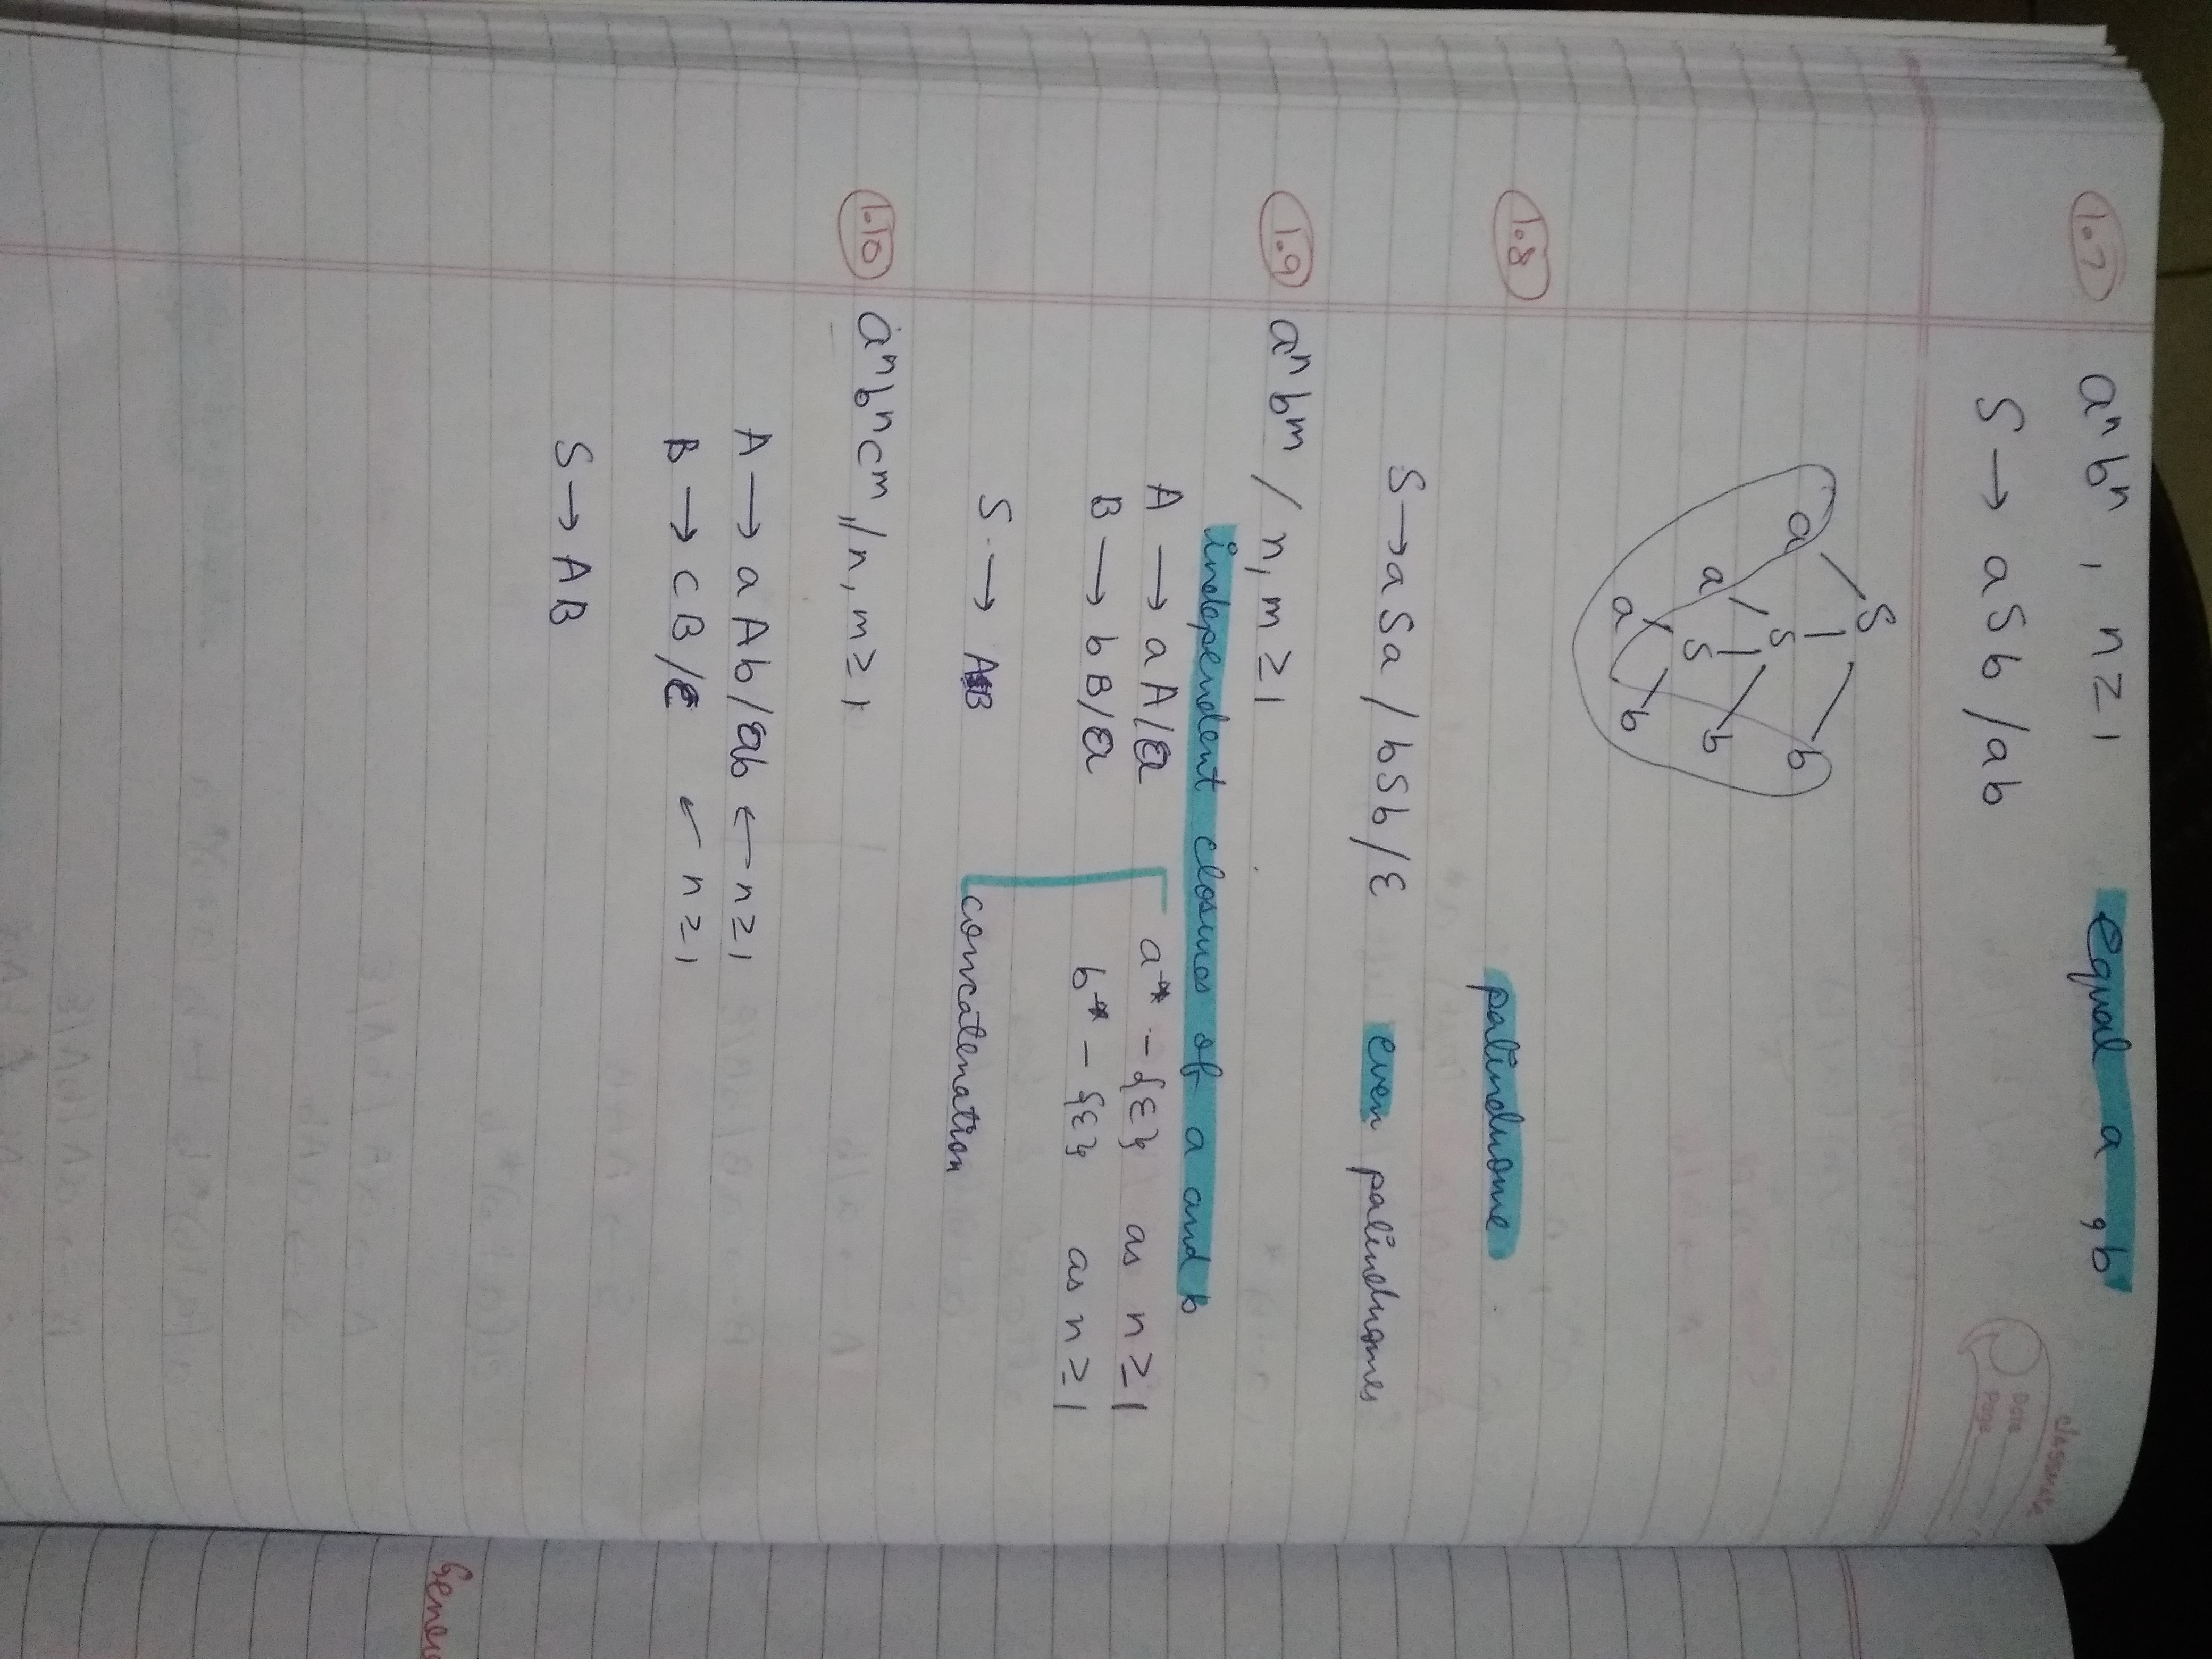 classmate
Date
Page
1.7 aⁿbⁿ, n≥1 equal a, b
S → aSb/ab
S
a S b
a S b
a b
1.8 palindrome
S → aSa / bSb / ε even palindromes
1.9 aⁿbᵐ / n, m ≥ 1
independent closures of a and b
A → aA/a a* - {ε} as n ≥ 1
B → bB/a b* - {ε} as n ≥ 1
S → AB concatenation
1.10 aⁿbⁿcᵐ / n, m ≥ 1
A → aAb/ab ← n ≥ 1
B → cB/c ← n ≥ 1
S → AB